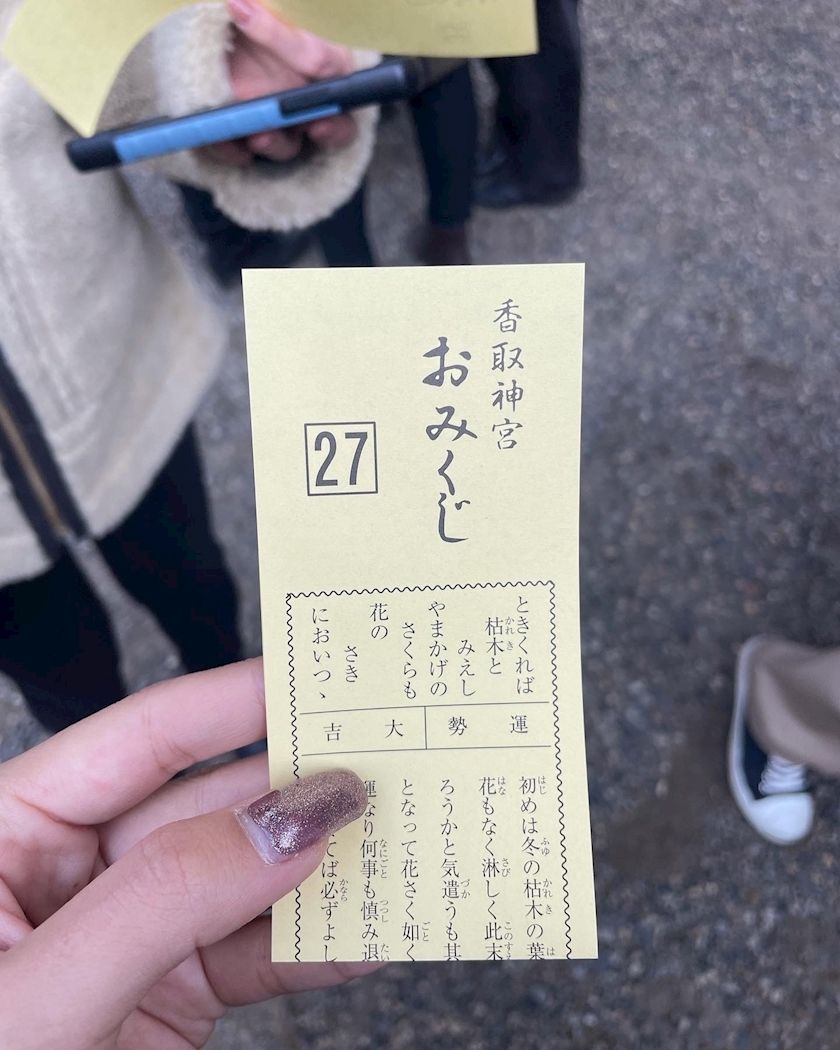 香取神宮
おみくじ
27
ときくれば
枯木と
みえし
やまかげの
さくらも
花の
さき
においつゝ
運勢
大吉
初めは冬の枯木の葉
花もなく淋しく此末
ろうかと気遣うも其
となって花さく如く
運なり何事も慎み退
てば必ずよし